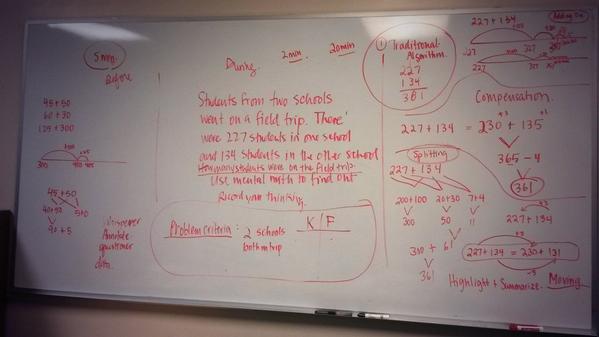 5 min.
Before
45 + 50
60 + 30
125 + 300
300
45 + 50
40+50
5+0
90 + 5
Annotate
questioner
data.
During
2min
20min
Students from two schools
went on a field trip. There
were 227 students in one school
and 134 students in the other school
How many students were on the field trip.
Use mental math to find out
Record your thinking.
Problem criteria: 2 schools
both on trip
K F
1 Traditional
Algorithm.
227
134
361
227+134
Adding On
+100
227
327
227
327
Compensation.
+3 +1
227 + 134 = 230 + 135
365 - 4
361
Splitting
227 + 134
200+100 20+30 7+4
300 50 11
300 + 61
361
227 + 134
+3
227+134 = 230 + 131
-3
Highlight + Summarize.
Moving